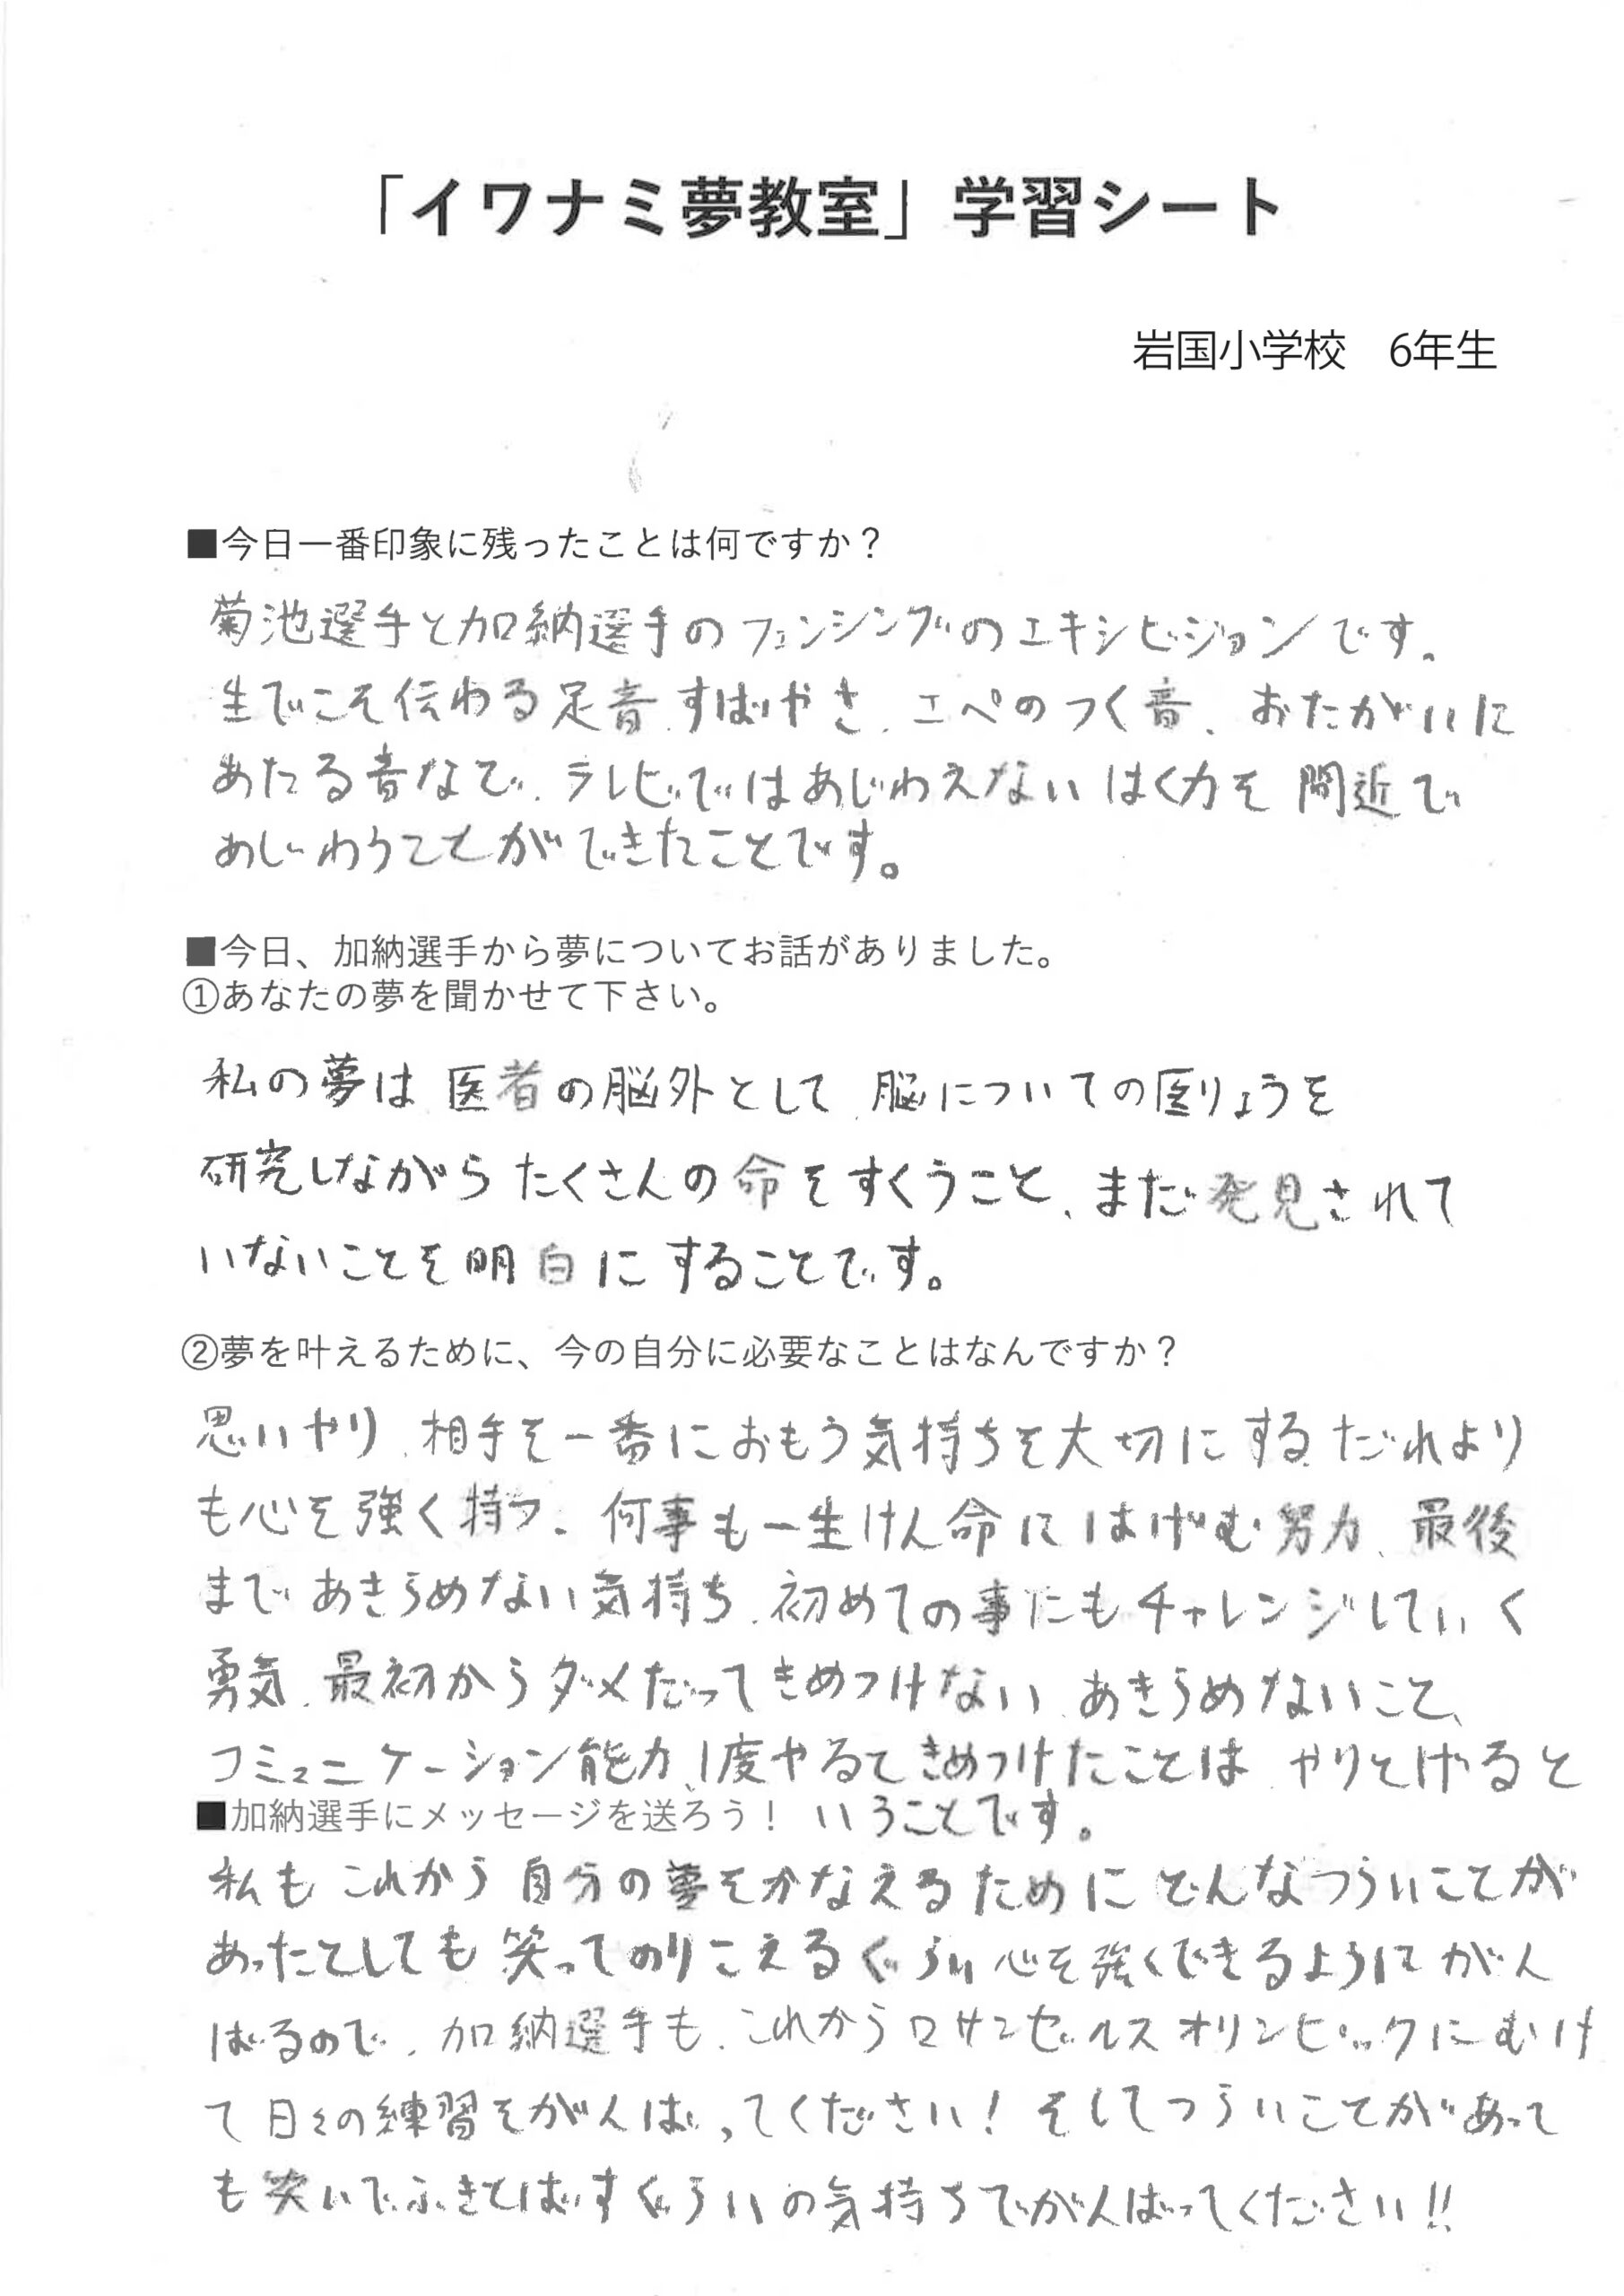 「イワナミ夢教室」学習シート
岩国小学校　6年生
■今日一番印象に残ったことは何ですか？
菊池選手と加納選手のフェンシングのエキシビジョンです。
生でこそ伝わる足音、すばやさ、エペのつく音、おたがいに
あたる音など、テレビではあじわえないはく力を間近で
あじわうことができたことです。
■今日、加納選手から夢についてお話がありました。
①あなたの夢を聞かせて下さい。
私の夢は医者の脳外として、脳についての医りょうを
研究しながらたくさんの命をすくうこと、まだ発見されて
いないことを明白にすることです。
②夢を叶えるために、今の自分に必要なことはなんですか？
思いやり、相手を一番におもう気持ちを大切にする、だれより
も心を強く持つ、何事も一生けん命にはげむ努力、最後
まであきらめない気持ち、初めての事にもチャレンジしていく
勇気、最初からダメだってきめつけない、あきらめないこと、
コミュニケーション能力、1度やるてきめつけたことは、やりとげると
■加納選手にメッセージを送ろう！ いうことです。
私もこれから自分の夢をかなえるためにどんなつらいことが
あったとしても笑ってのりこえるぐらい心を強くできるようにがん
ばるので、加納選手も、これからロサンゼルスオリンピックにむけ
て日々の練習をがんばってください！そしてつらいことがあって
も笑いでふきとばすぐらいの気持ちでがんばってください!!